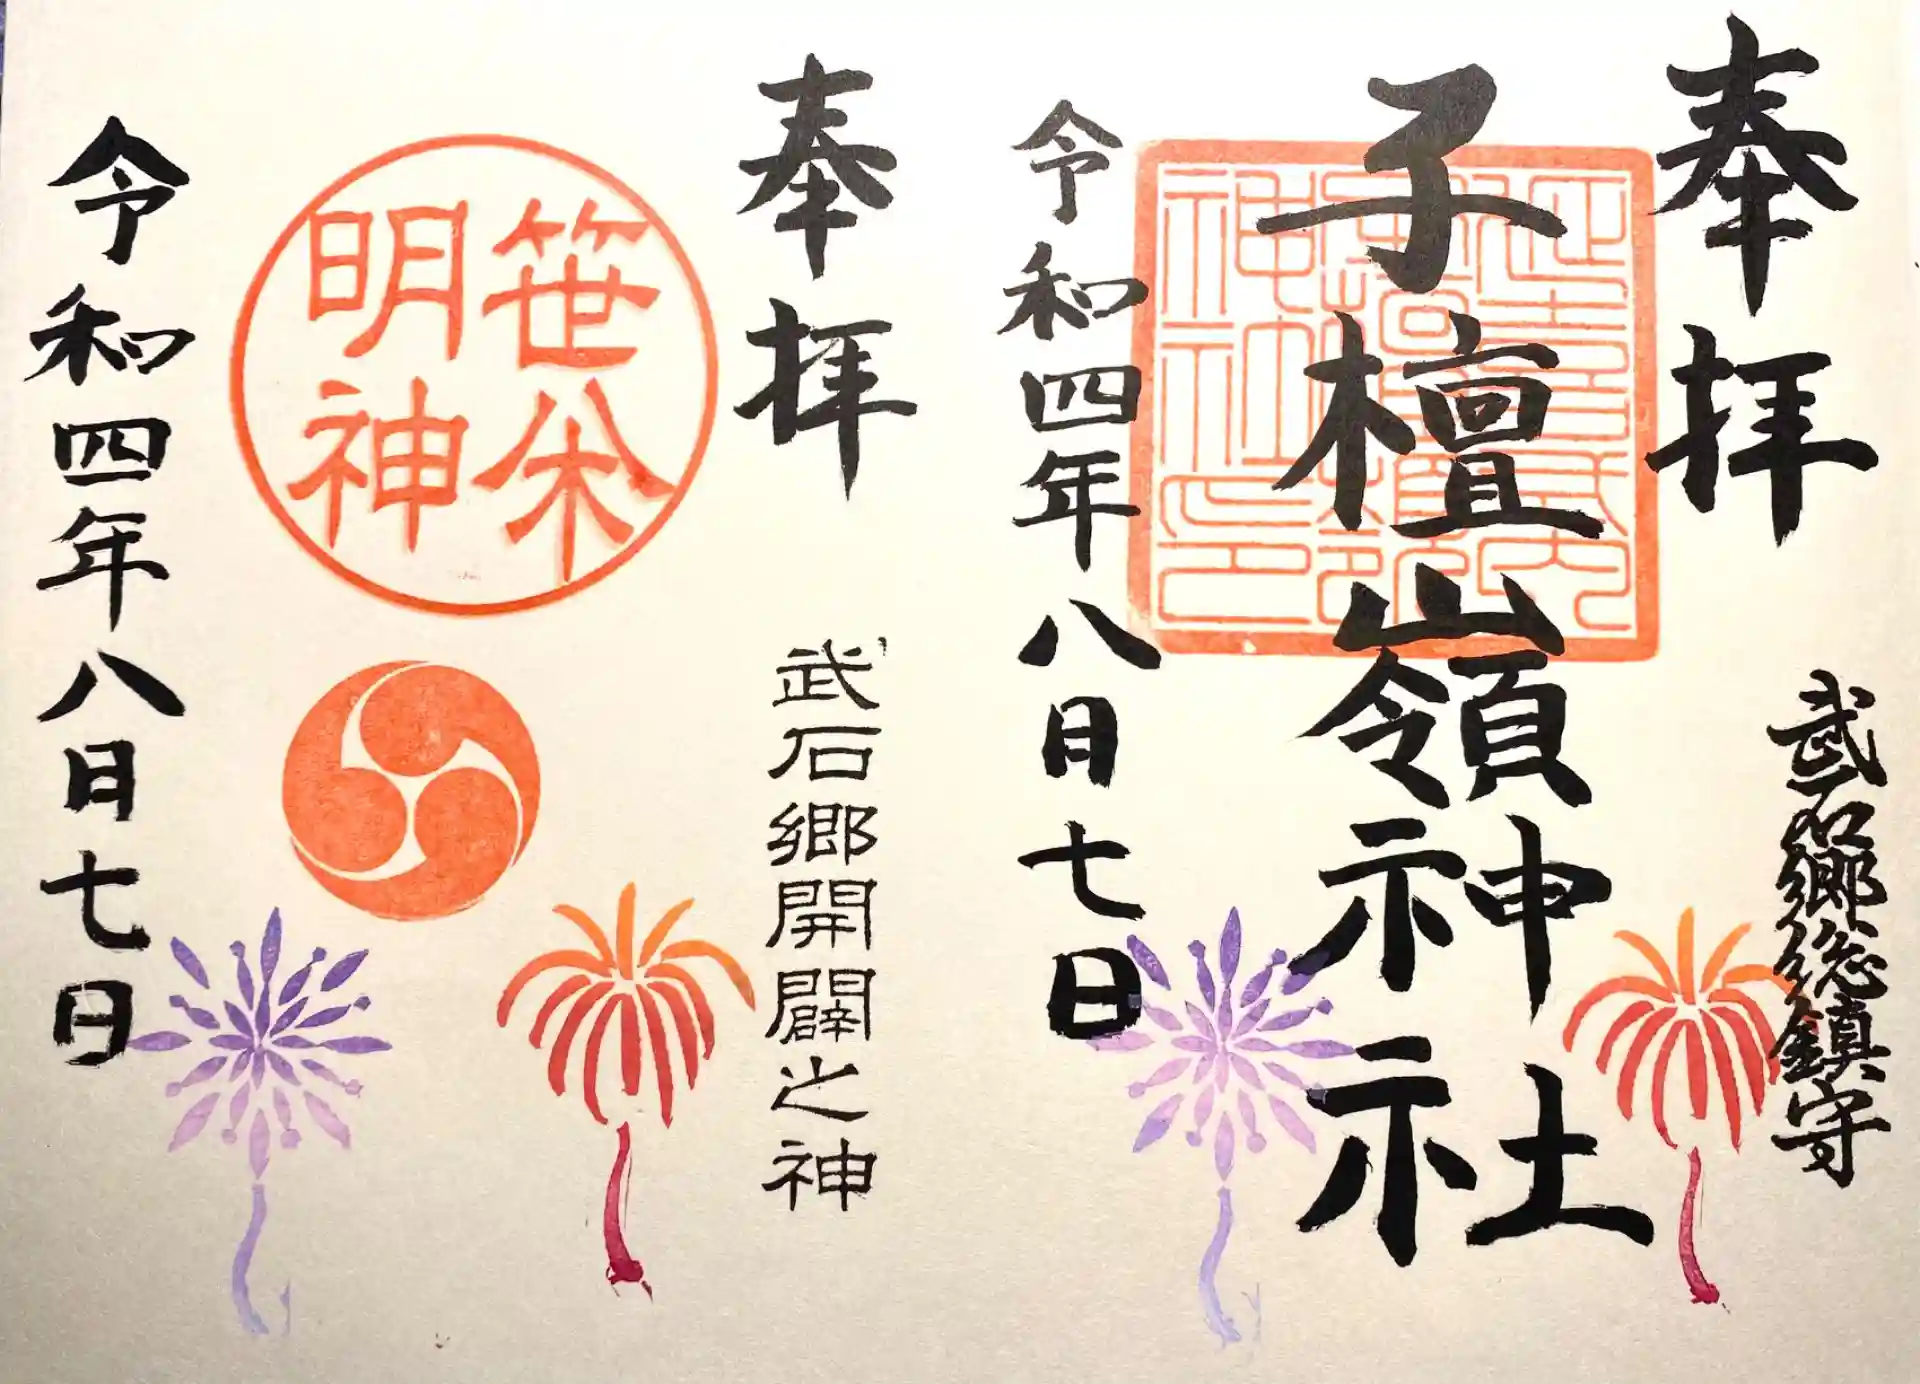 奉拝
武石郷総鎮守
子檀嶺神社
令和四年八月七日
奉拝
武石郷開闢之神
笹
明神
令和四年八月七日